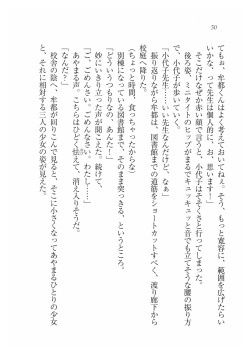 50
でもぉ、牟都くんはよく考えておいてねぇ。そう、もっと寛容に、範囲を広げたらい
いかな、って先生は個人的に、お、思います……」
そこだけなぜか赤い顔で囁うと、小代子はそそくさと行ってしまった。
後ろ姿、ミニタイトのヒップがまるでキュッキュッと音でも立てそうな腰の振り方
で、小代子が歩いていく。
「小代子先生……いい先生なんだけど、なぁ」
振り返りながら牟都は、図書館までの道筋をショートカットすべく、渡り廊下から
校庭へ降りた。
（ちょっと時間、食っちゃったからな）
別棟になっている図書館まで、そのまま突っきる、というところ。
「どういうつもりなの、あんた！」
妙にいきり立った声が聞こえた。続けて、
「ご、ごめんさい。ごめんなさい、わたし……」
あやまる声。こちらはひどく怯えて、消え入りそうだ。
「なんだ？」
校舎の陰へ、牟都が回りこんで見ると、そこに小さくなってあやまるひとりの少女
と、それに相対する三人の少女の姿が見えた。